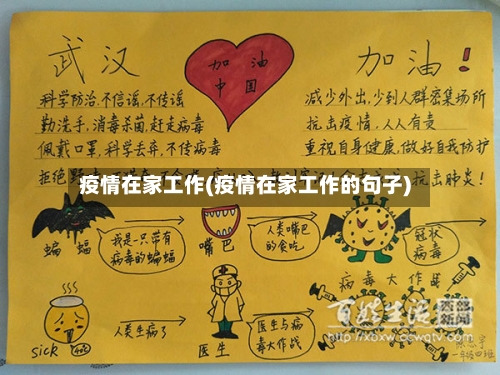 武汉
加油!
加油
中国
科学防治,不信谣,不传谣
勤洗手,消毒杀菌,赶走病毒
佩戴口罩,科学丢弃,不传病毒
拒绝野
减少外出,少到人群密集场所
抗击疫情,人人有责
重视自身健康,做好自我防护
抗击肺炎!
疫情在家工作(疫情在家工作的句子)
蝙蝠
我是一只带有
病毒的蝙蝠
嘴巴
人类嘴巴
的贪吃
冠状
病毒
病毒大作战
sick
人类生病了
医生
医生与病
毒大作战
百姓生活
西部
新闻
一年级四班